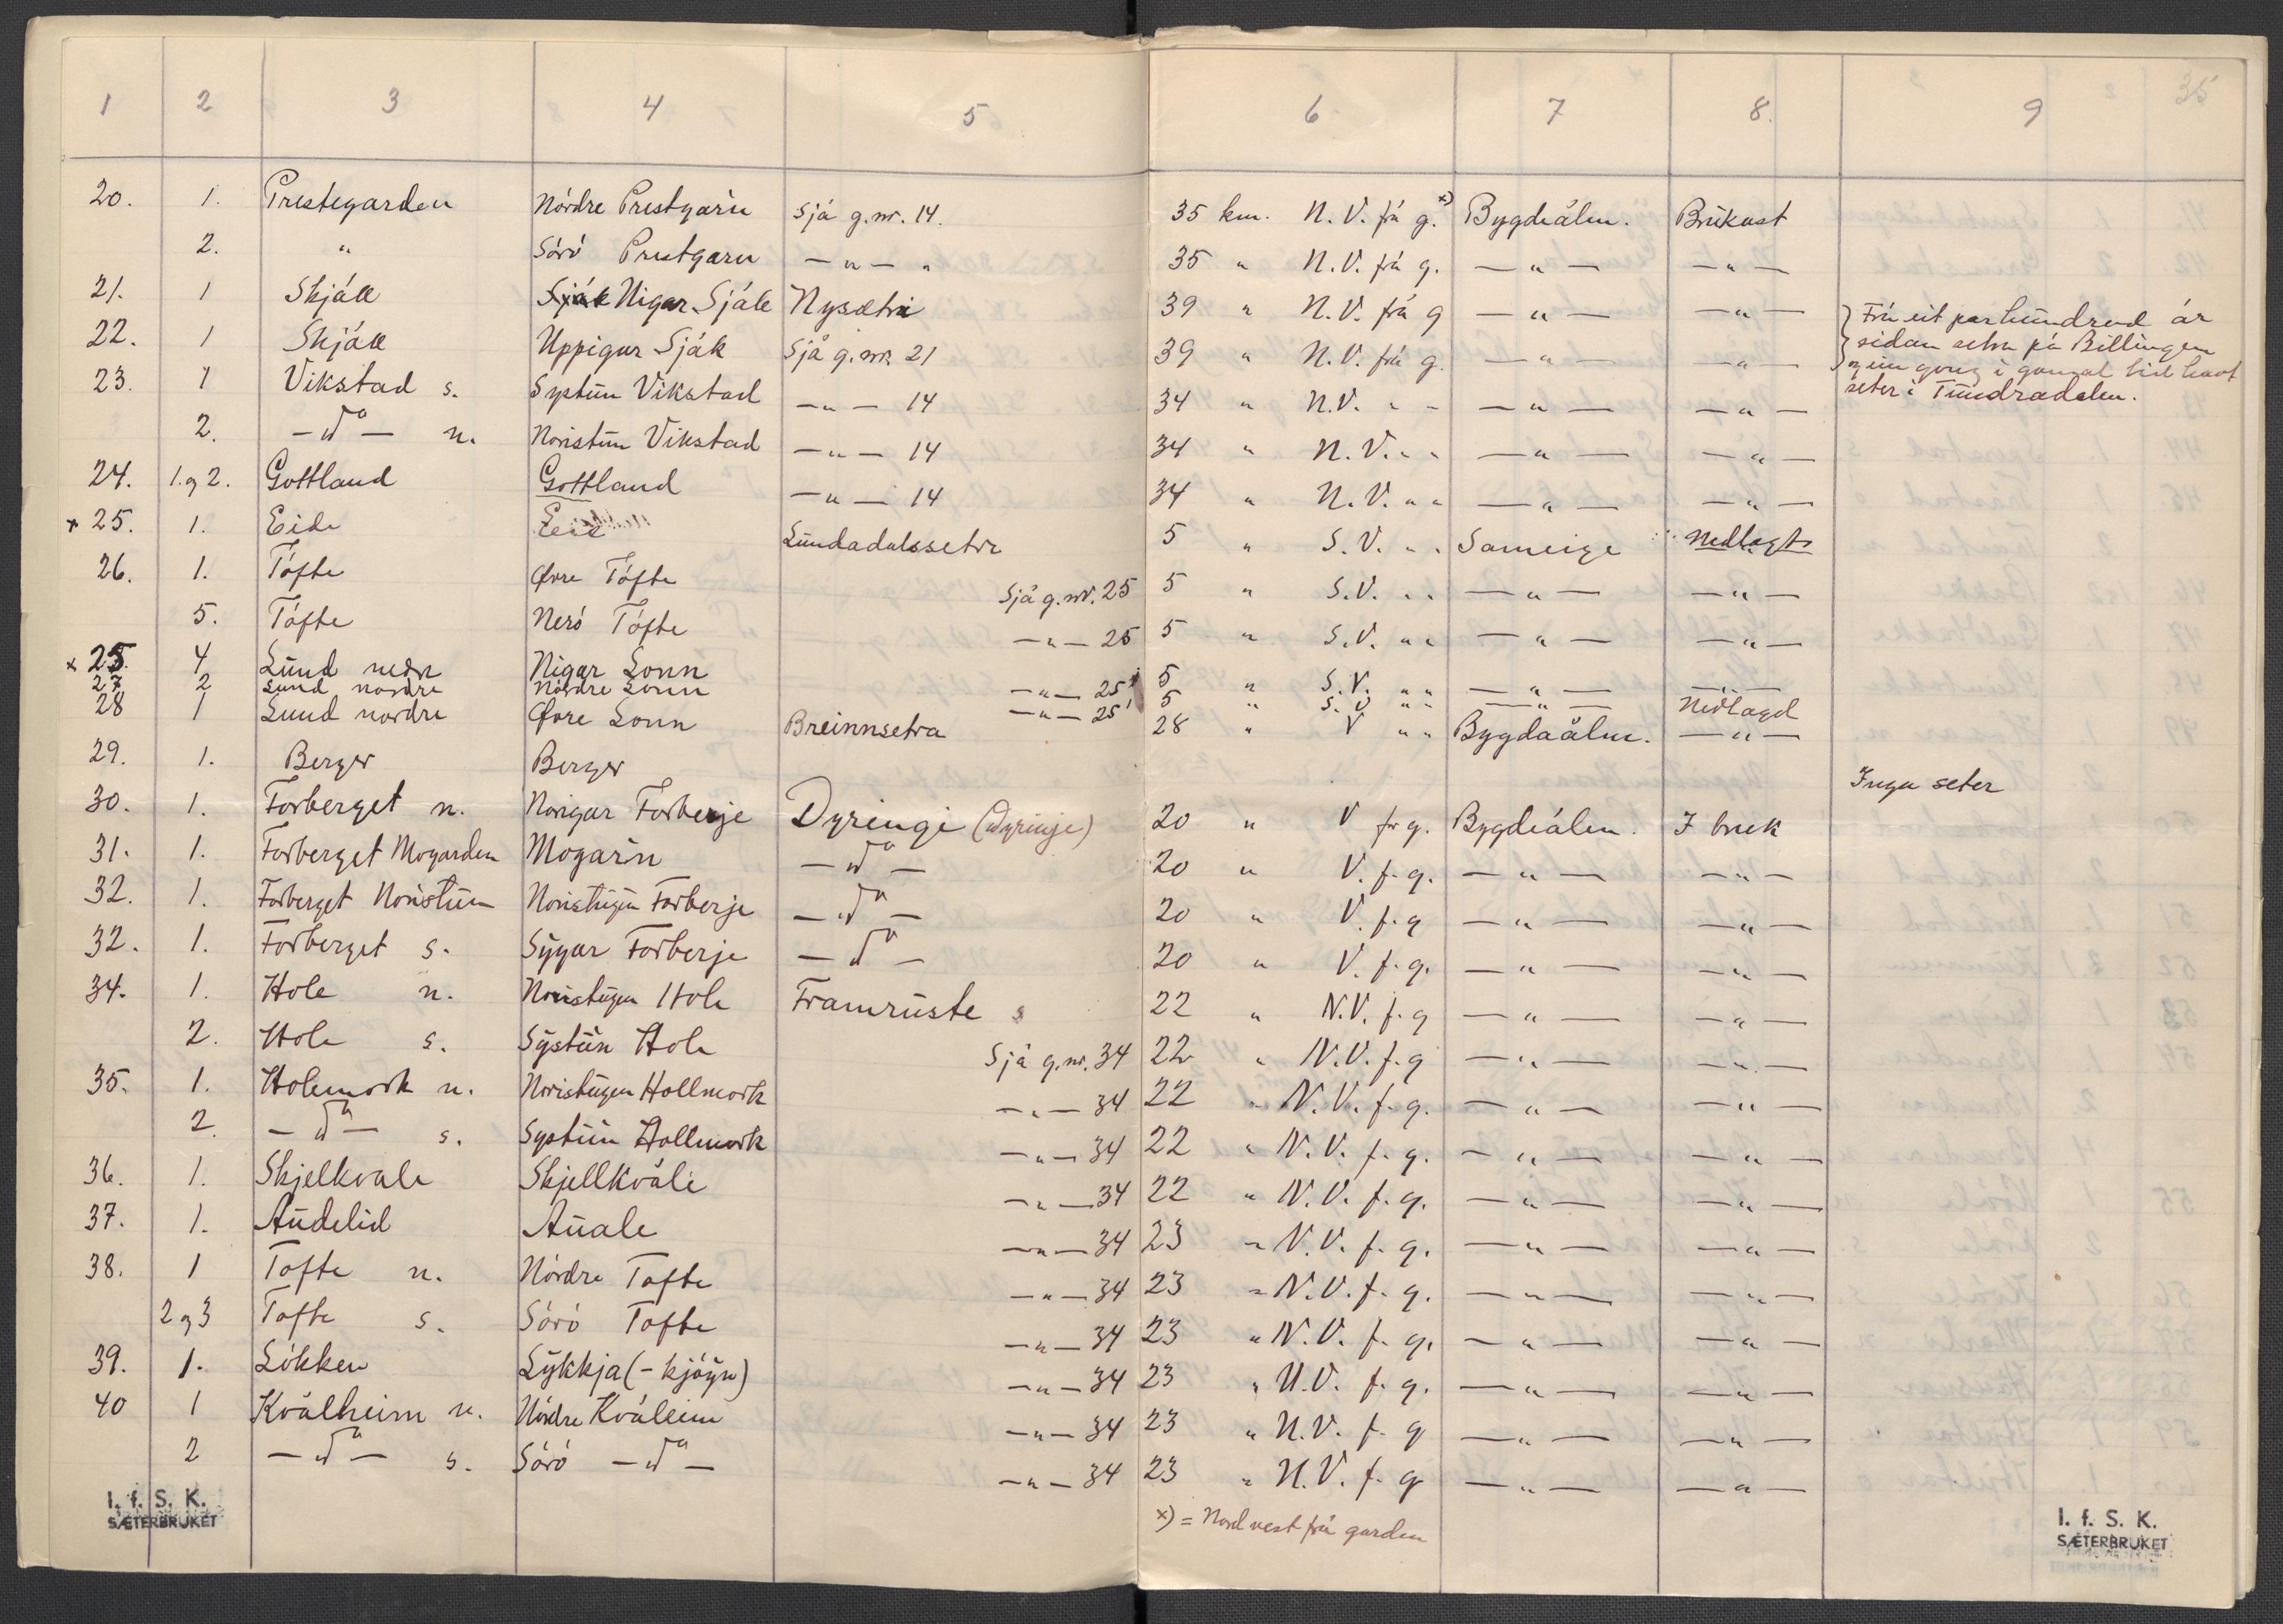 1 2 3 4 5 6 7 8. 9 35
20. 1. Prestegarden Nórdre Prestgarn Sjá g.nr. 14. 35 km. N.V. frå g. x) Bygdeálm. Brukast
2. " Sóró Prestgarn — " — " 35 " N.V. frå g. — " — — " —
21. 1 Skjåk Nigar Sjåk Nysætri 39 " N.V. frå g — " — — " — } Frå eit parhundrad år
22. 1 Skjåk Uppigar Sjåk Sjå g.nr. 21 39 " N.V. frå g. — " — — " — } sidan setra på Billingen
og ein gong i gamal tid havt
23. 1 Vikstad s. Systun Vikstad — " — 14 34 " N.V. " " — " — — " — seter i Tundradalen.
2. — d° — n. Noristun Vikstad — " — 14 34 " N.V. " " — " — — " —
24. 1. og 2. Gottland Gottland — " — 14 34 " N.V. " " — " — — " —
x 25. 1. Eide Lundadalssetre 5 " S.V. " " Sameige Nedlagt
26. 1. Tófte Øvre Tófte Sjå g.nr. 25 5 " S.V. " " — " — — " —
5. Tófte Neró Tófte — " — 25 5 " S.V. " " — " — — " —
x 25. 4 Lund nedre Nigar Lonn — " — 25 5 " S.V. " " — " — — " —
27 2 Lund nordre Nórdre Lonn — " — 25 5 " S.V " " — " — Nedlagd
28 1 Lund nordre Øvre Lonn Breinnsetra 28 " V " " Bygdaålm. — " —
29. 1. Berger Berger Inga seter
30. 1. Forberget n. Norigar Forberje Dyringi (Dyrinje) 20 " V fr g. Bygdeálm. I bruk
31. 1. Forberget Mogarden Mogarin — d° — 20 " V. f. g. — " — — " —
32. 1. Forberget Noristun Noristugun Forberje — d° — 20 " V. f. g — " — — " —
32. 1. Forberget s. Sygar Forberje — d° — 20 " V. f. g. — " — — " —
34. 1. Hole n. Noristugun Hole Framruste 22 " N.V. f. g — " — — " —
2. Hole s. Systun Hole Sjå g.nr. 34 22 " N.V. f. g — " — — " —
35. 1. Holemork n. Noristugun Hollmork — " — 34 22 " N.V. f. g. — " — — " —
2. — d° — s. Systun Hollmork — " — 34 22 " N.V. f. g. — " — — " —
36. 1. Skjelkvale Skjellkvåle — " — 34 22 " N.V. f. g. — " — — " —
37. 1. Audelid Auale — " — 34 23 " N.V. f. g. — " — — " —
38. 1 Tofte n. Nórdre Tofte — " — 34 23 " N.V. f. g. — " — — " —
2 og 3 Tofte s. Sóró Tofte — " — 34 23 " N.V. f. g. — " — — " —
39. 1. Lókken Lykkja (-kjóyn) — " — 34 23 " N.V. f. g. — " — — " —
40 1 Kvålheim n. Nórdre Kvåleim — " — 34 23 " N.V. f. g — " — — " —
2 — d° — s. Sóró — d° — — " — 34 23 " N.V. f. g — " — — " —
x) = Nord vest frå garden
I. f. S. K.
SÆTERBRUKET
I. f. S. K.
SÆTERBRUKET